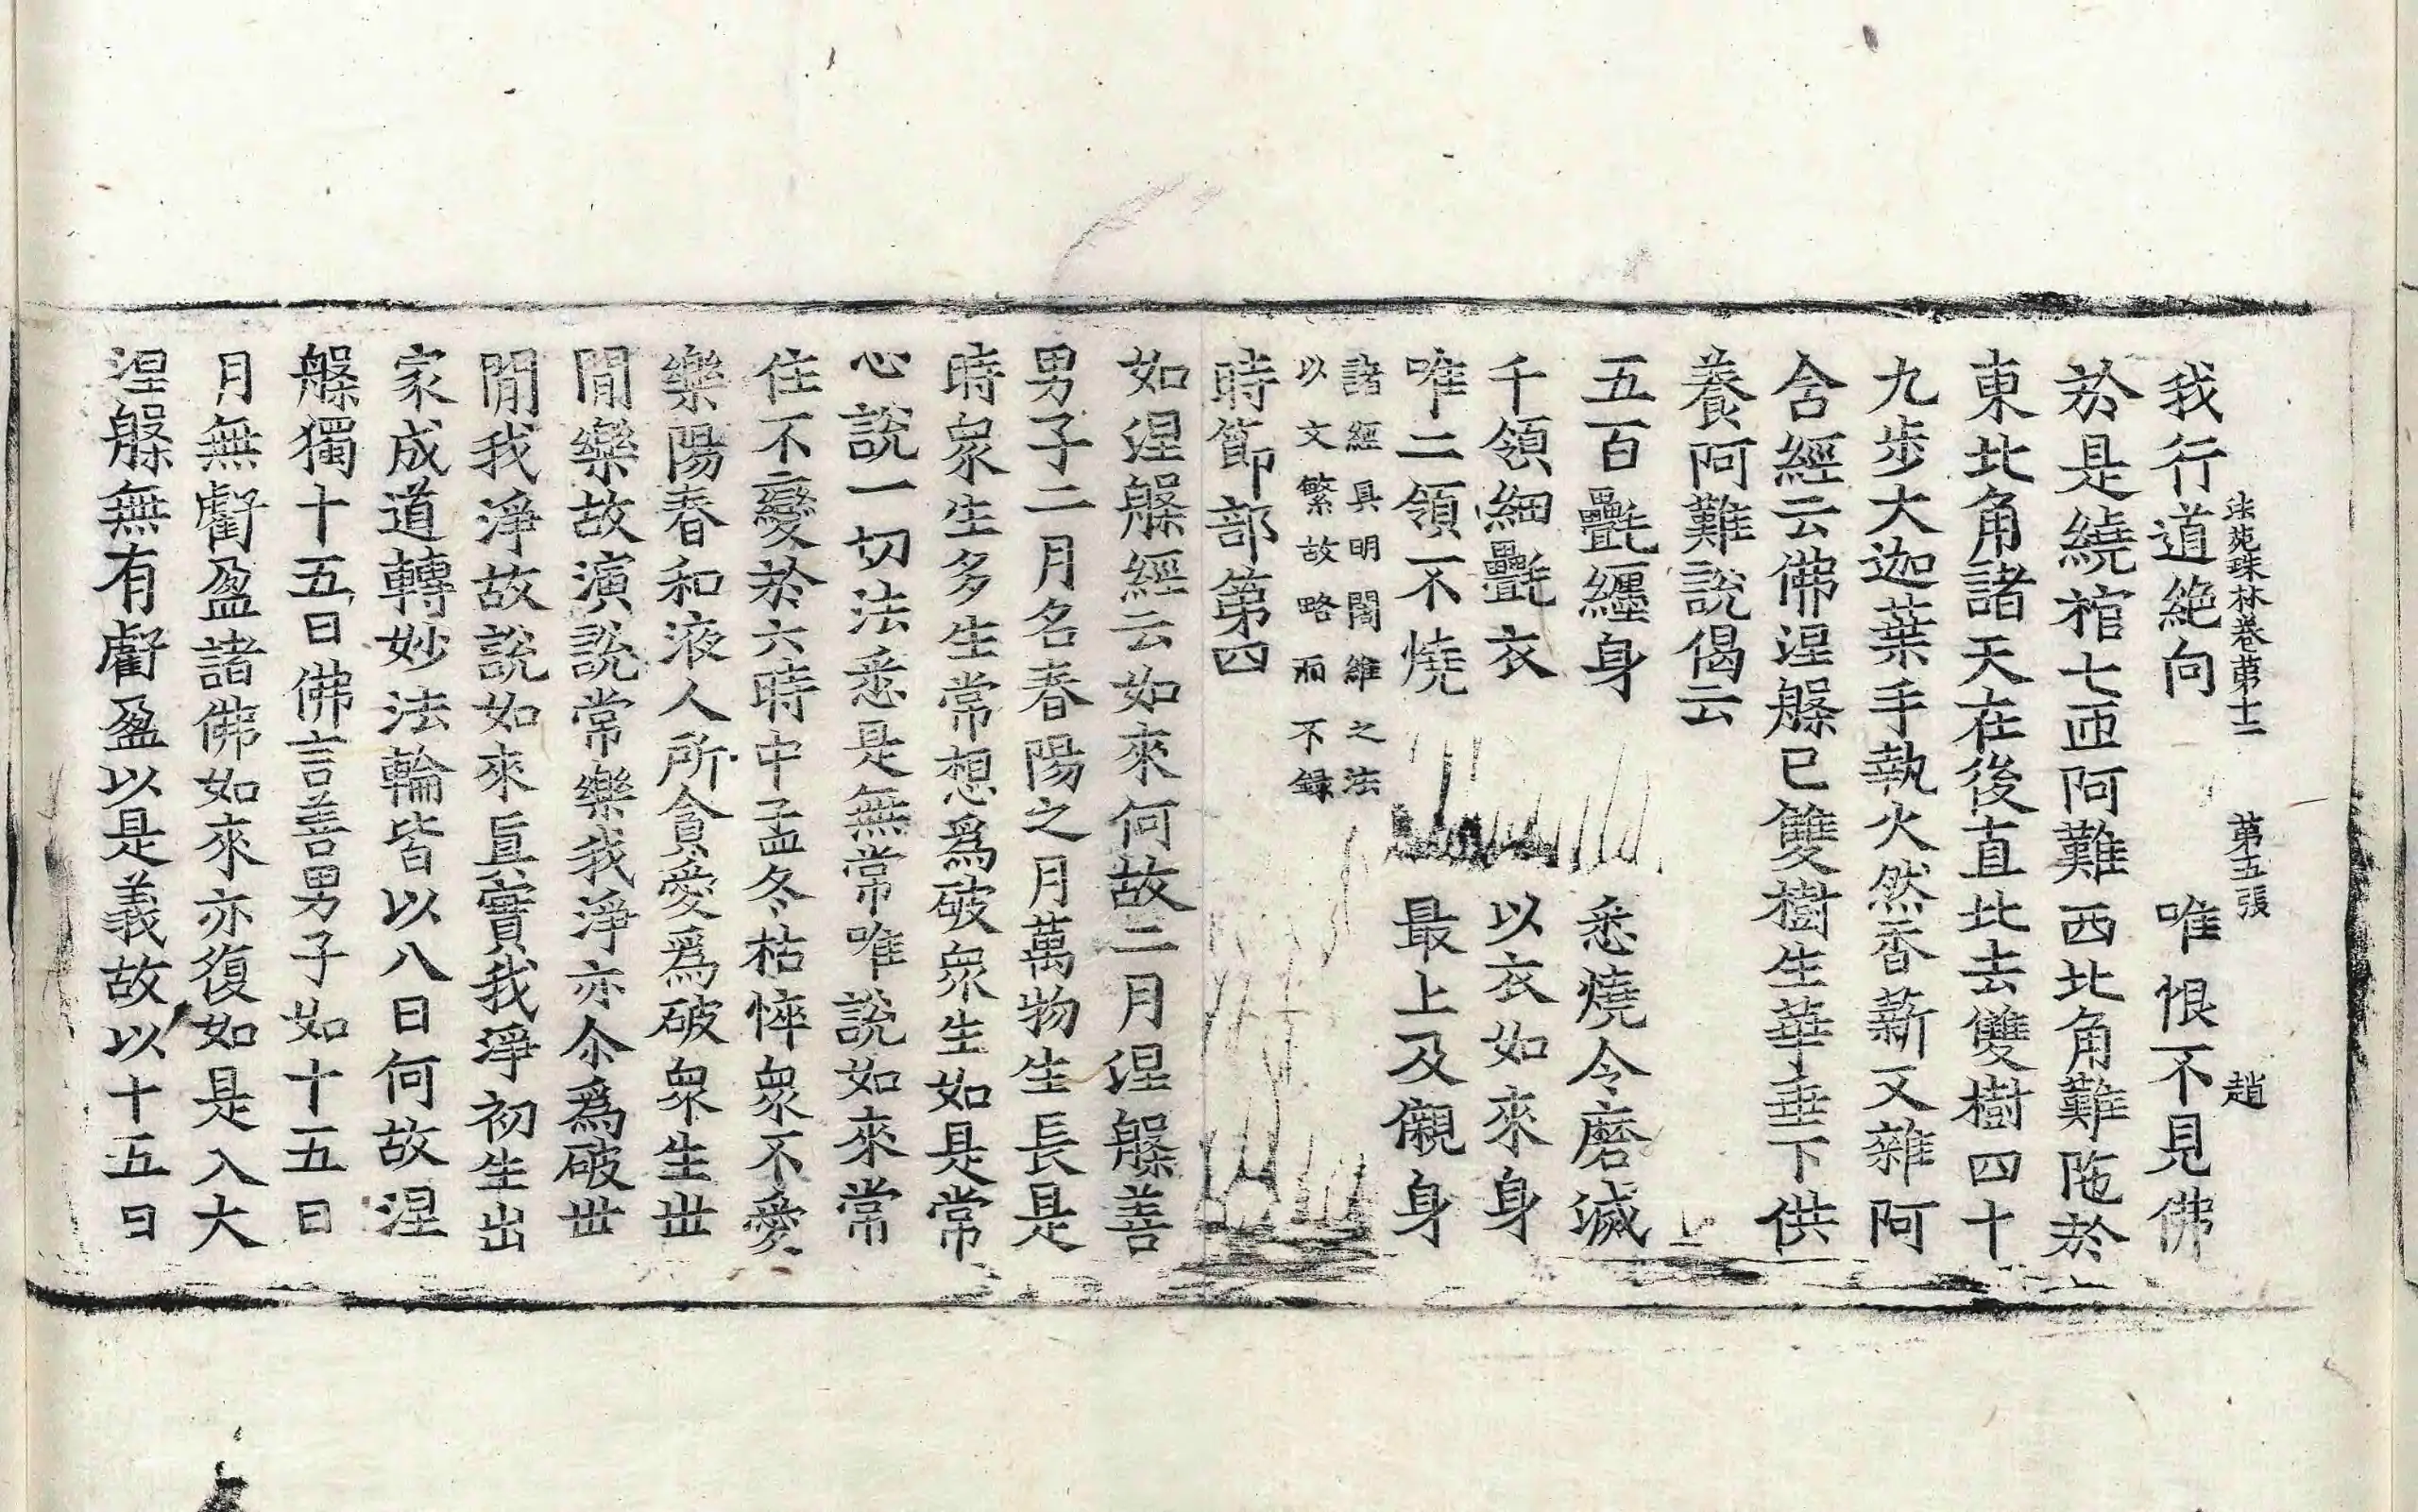 法苑珠林卷第十二 第五張 趙
我行道絶向 唯恨不見佛
於是繞棺七匝阿難西北角難陁於
東北角諸天在後直北去雙樹四十
九步大迦葉手執火然香薪又雜阿
含經云佛涅槃已雙樹生華垂下供
養阿難說偈云
五百㲲纏身 悉燒令磨滅
千領細㲲衣 以衣如來身
唯二領不燒 最上及儭身
諸經具明闍維之法
以文繁故略而不録
時節部第四
如涅槃經云如來何故二月涅槃善
男子二月名春陽之月萬物生長是
時衆生多生常想爲破衆生如是常
心說一切法悉是無常唯說如來常
住不變於六時中孟冬枯悴衆不愛
樂陽春和液人所貪愛爲破衆生世
閒樂故演說常樂我淨亦尒爲破世
閒我淨故說如來眞實我淨初生出
家成道轉妙法輪皆以八日何故涅
槃獨十五日佛言善男子如十五日
月無虧盈諸佛如來亦復如是入大
涅槃無有虧盈以是義故以十五日